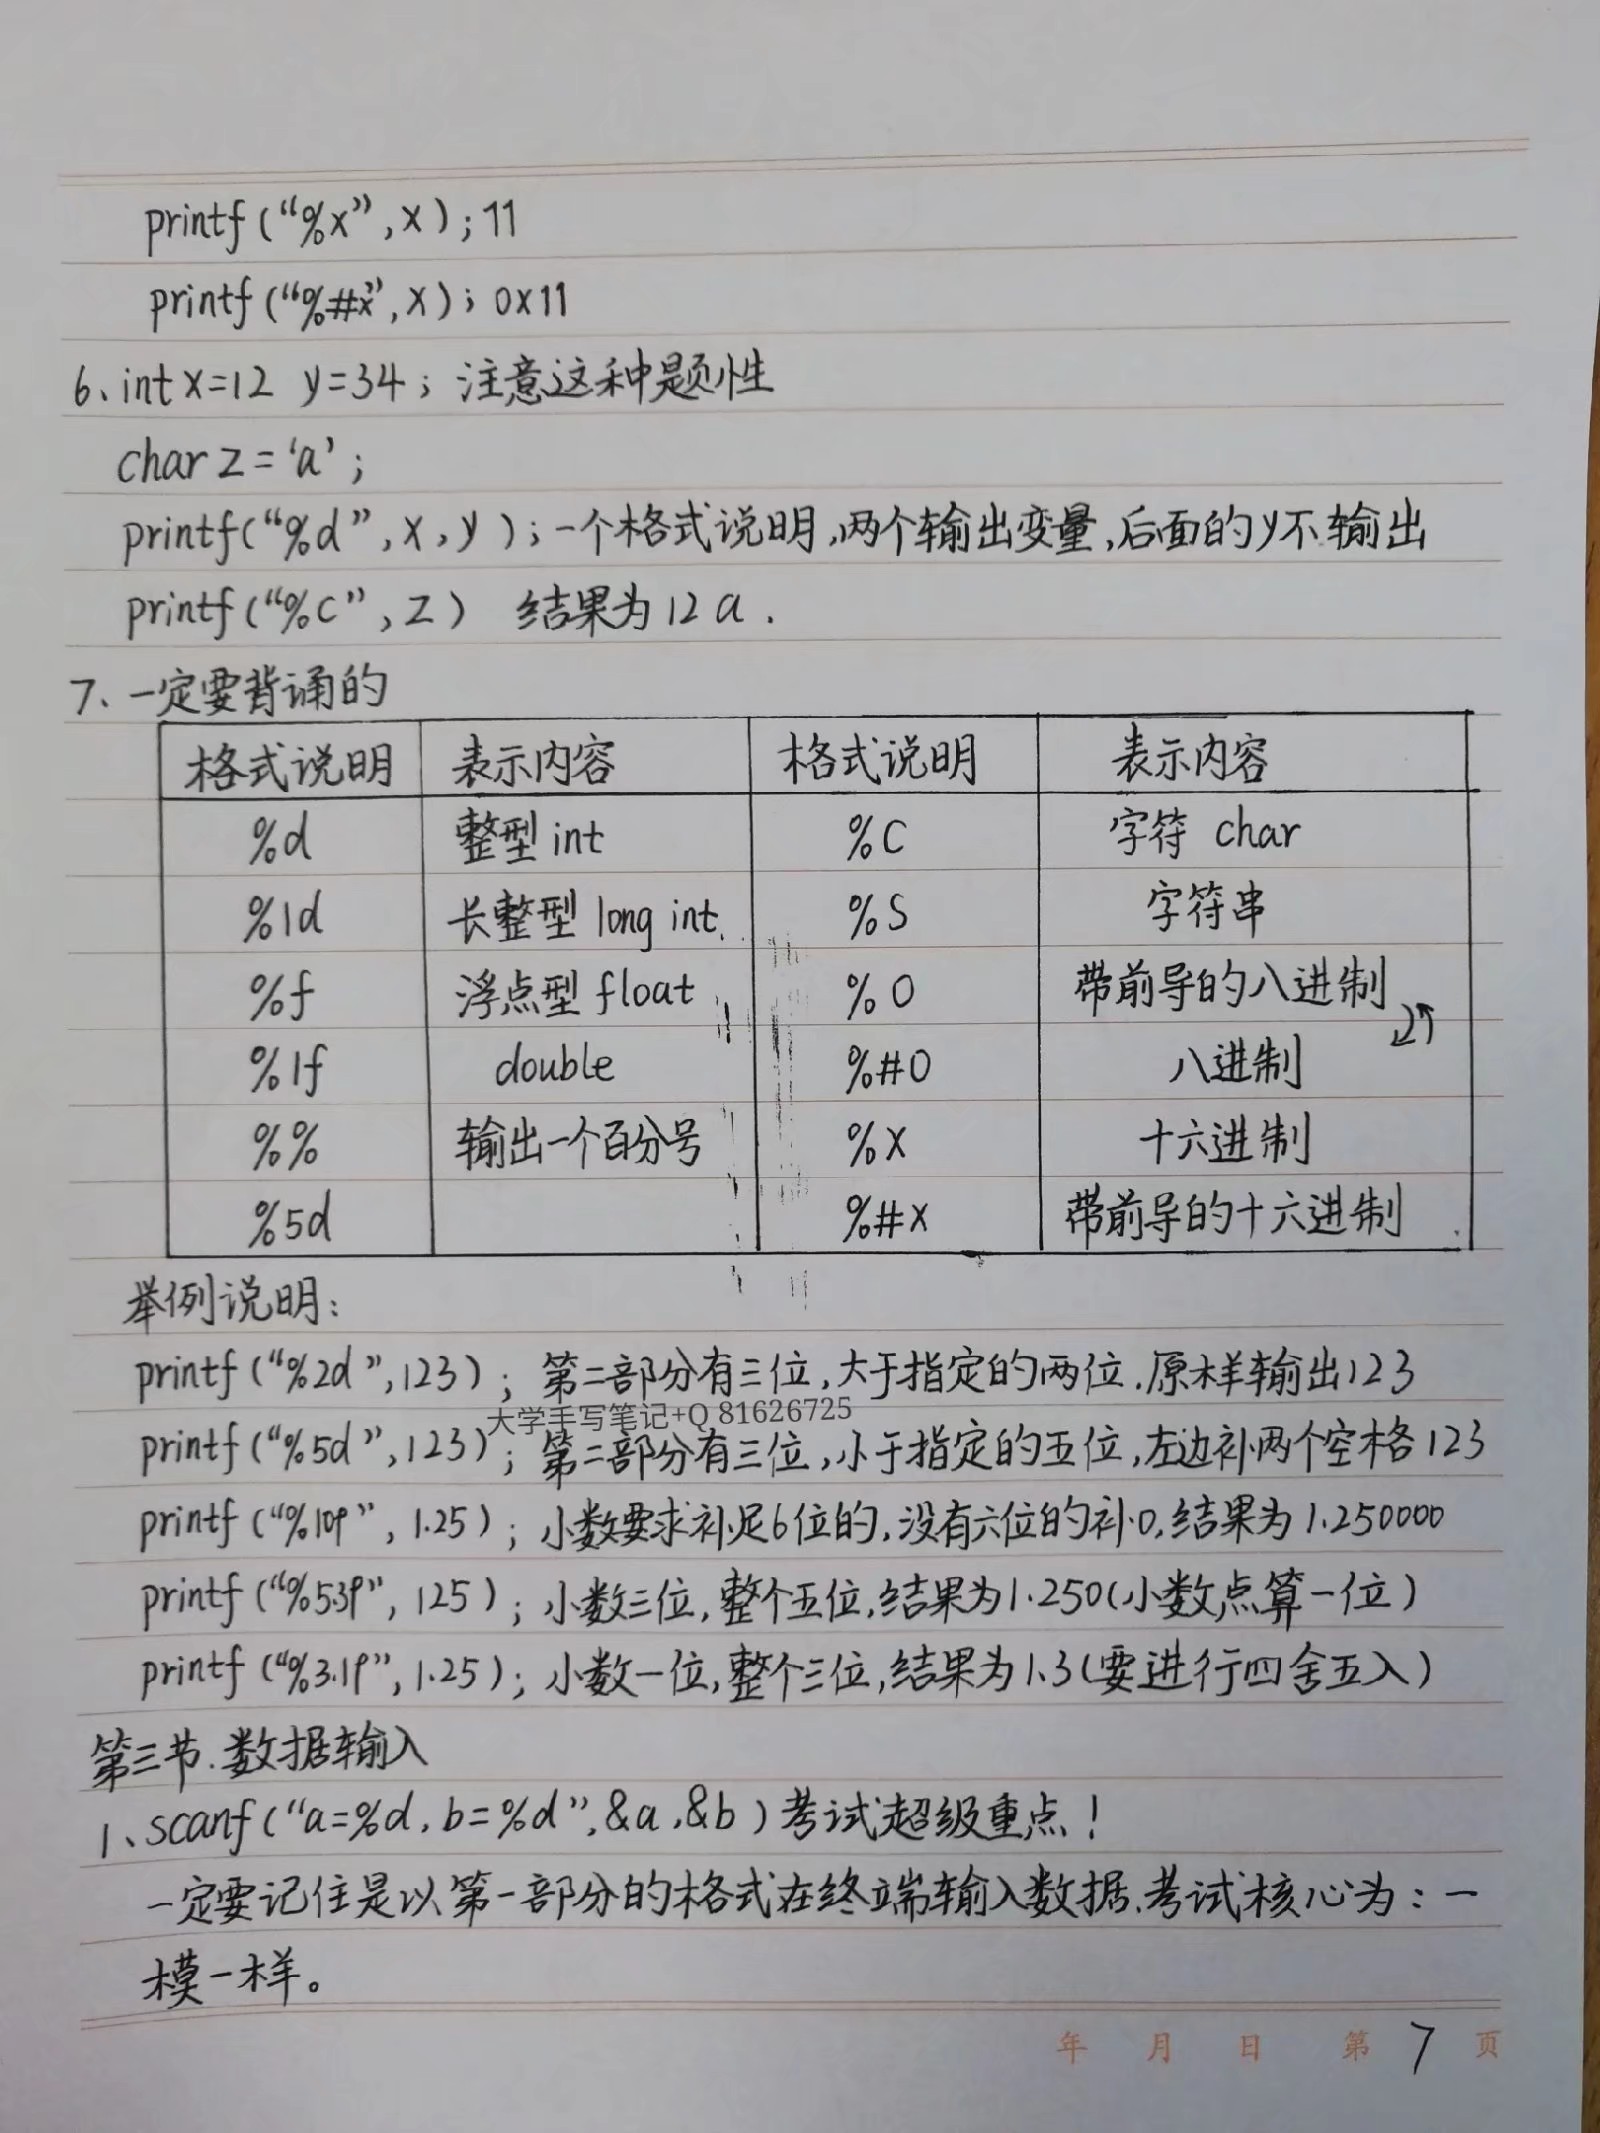 printf(“%x”,x);11
printf(“%#x”,x);0x11
6、int x=12 y=34;注意这种题性
char z=‘a’;
printf(“%d”,x,y);一个格式说明,两个输出变量,后面的y不输出
printf(“%c”,z) 结果为12a.
7、一定要背诵的
格式说明 表示内容 格式说明 表示内容
%d 整型 int %C 字符 char
%ld 长整型 long int %S 字符串
%f 浮点型 float %O 带前导的八进制
%lf double %#O 八进制
%% 输出一个百分号 %X 十六进制
%5d %#X 带前导的十六进制
举例说明:
printf(“%2d”,123);第二部分有三位,大于指定的两位.原样输出123
大学手写笔记+Q 81626725
printf(“%5d”,123);第二部分有三位,小于指定的五位,左边补两个空格123
printf(“%10f”,1.25);小数要求补足6位的,没有六位的补0,结果为1.250000
printf(“%5.3f”,125);小数三位,整个五位,结果为1.250(小数点算一位)
printf(“%3.1f”,1.25);小数一位,整个三位,结果为1.3(要进行四舍五入)
第三节.数据输入
1、scanf(“a=%d,b=%d”,&a,&b)考试超级重点!
一定要记住是以第一部分的格式在终端输入数据.考试核心为:一
模一样。
年 月 日 第 7 页